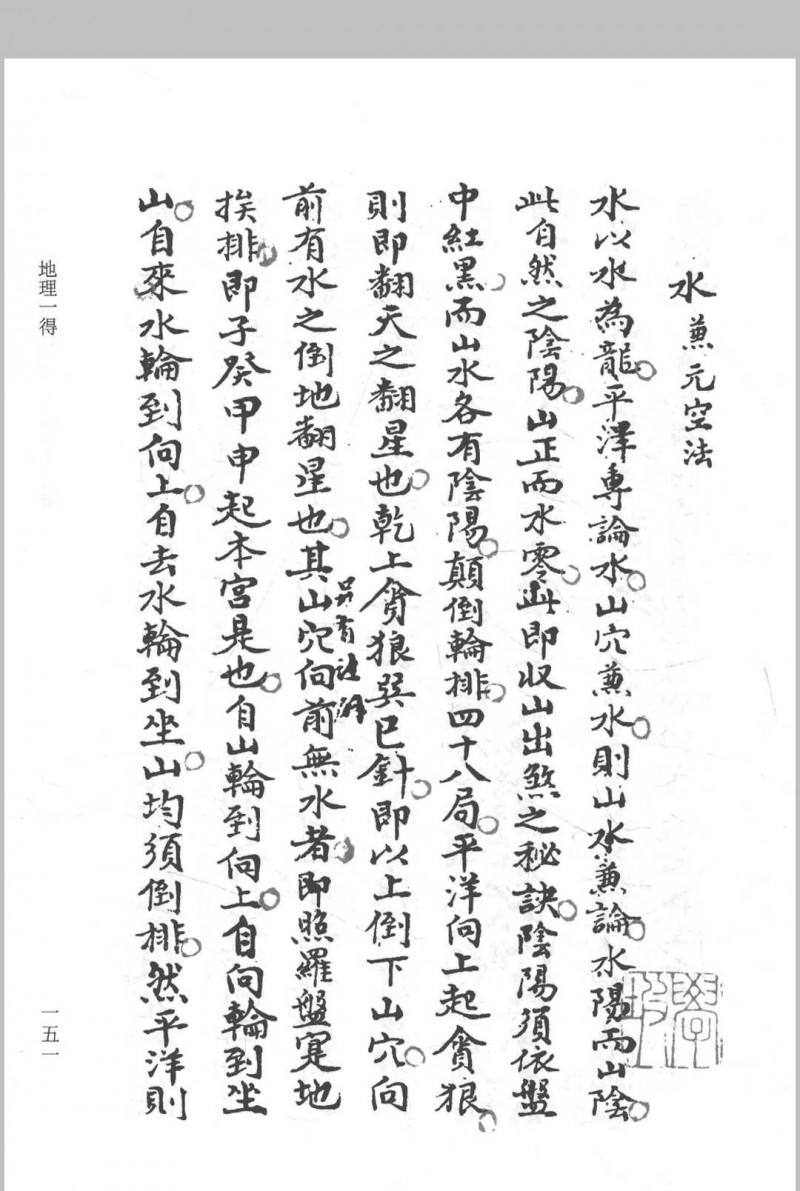 水蕪元空法
水以水為龍平洋專論水山穴兼水則山水兼論水陽而山陰
此自然之陰陽山正而水零此即収山出煞之秘訣陰陽須依盤
中紅黑而山水各有陰陽顛倒輪排四十八局平洋向上起貪狼
則即翻天之翻星也乾上貪狼巽巳針即以上倒下山穴向
前有水之倒地翻星也其山穴向前無水者即照羅盤寔地
另有註解
挨排即子癸甲申起本宮是也自山輪到向上自向輪到坐
山自來水輪到向上自去水輪到坐山均須倒排然平洋則
地理一得
一五一